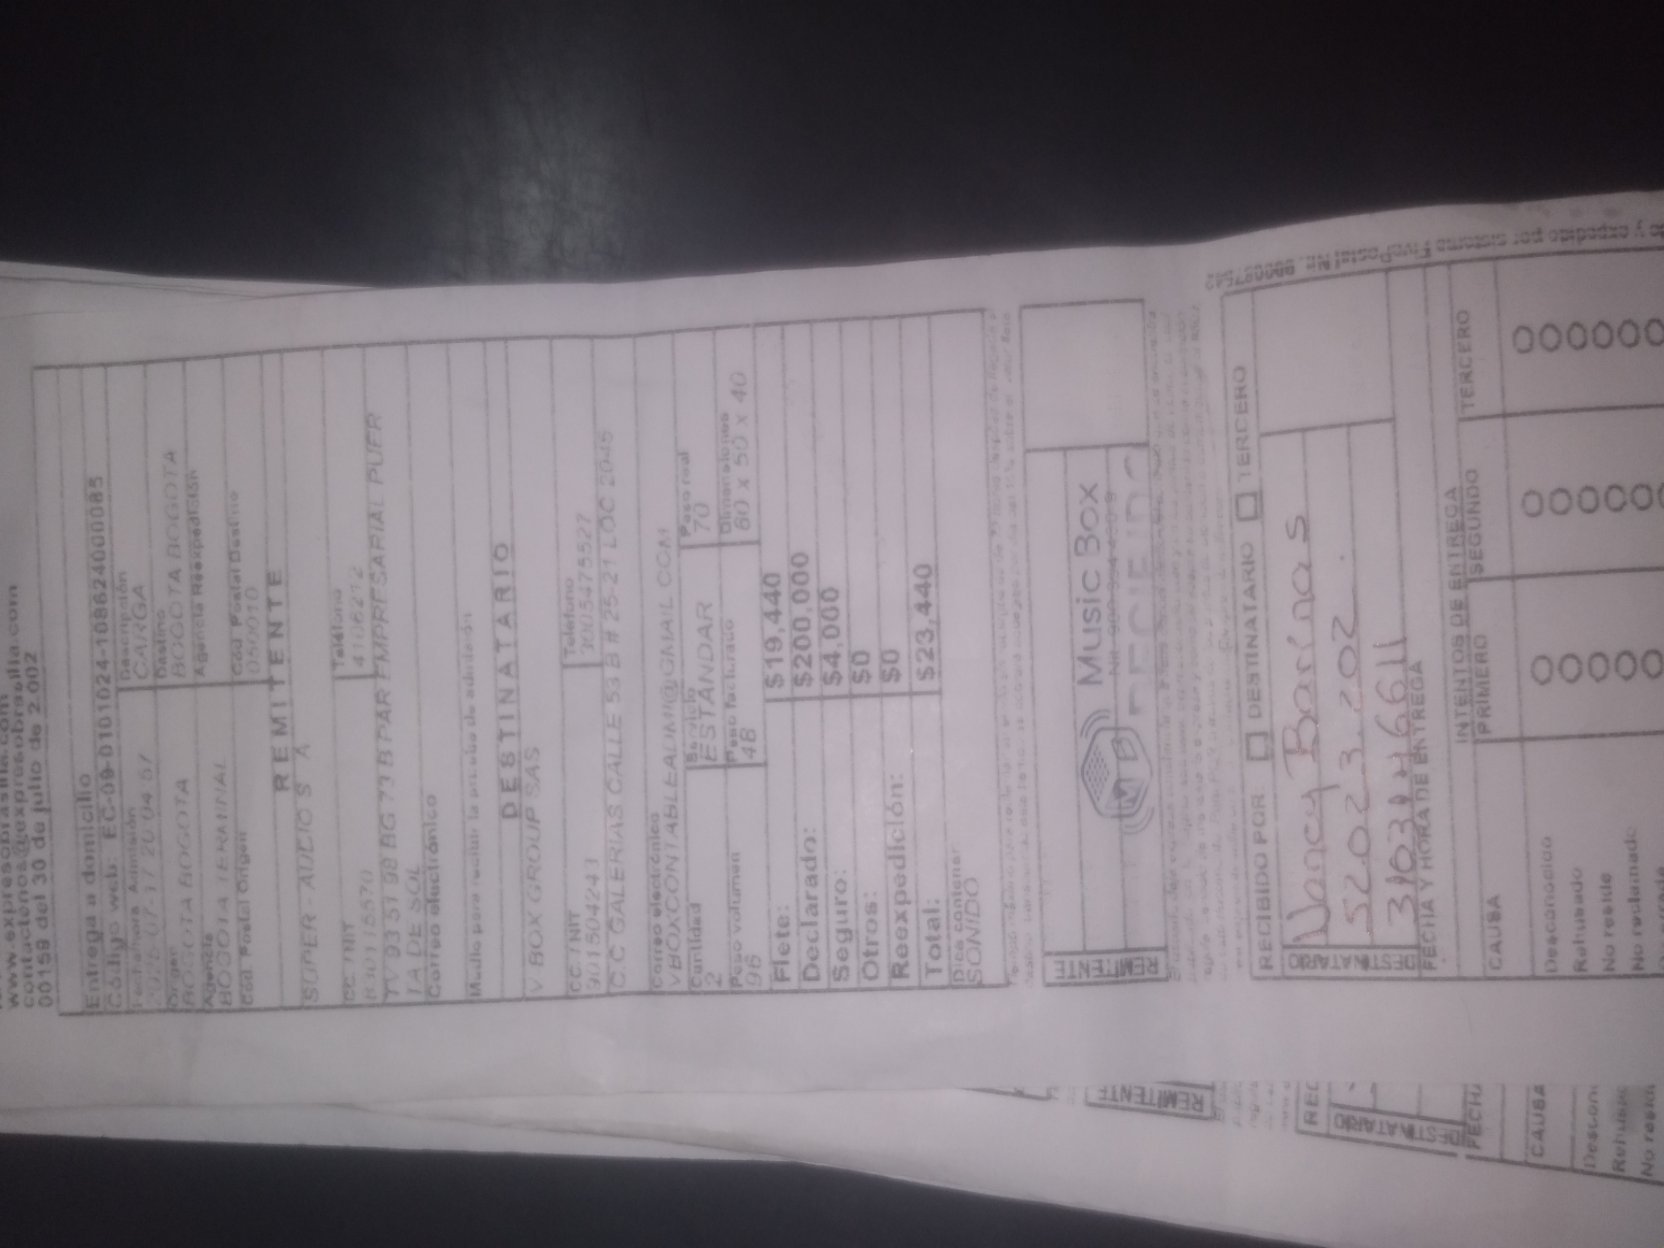 www.expresobrasilia.com
contactenos@expresobrasilia.com
00159 del 30 de julio de 2.002
Entrega a domicilio
Código web: EC-09-0101024-1088624000085
Fecha/hora Admisión
Descripción
CARGA
Origen
BOGOTA BOGOTA
Destino
BOGOTA BOGOTA
Agencia
BOGOTA TERMINAL
Agencia Reexpedición
Cód. Postal Origen
Cód Postal Destino
050010
REMITENTE
SUPER-AUDIO S A
CC. / NIT
Teléfono
4106272
TV 93 51 98 BG 73 B PAR EMPRESARIAL PUER
TA DE SOL
Correo electrónico
DESTINATARIO
V BOX GROUP SAS
CC. / NIT
901504243
Teléfono
3005475527
C.C GALERIAS CALLE 53 B # 25-21 LOC 2045
Correo electrónico
VBOXCONTABLEAUMI@GMAIL.COM
Cantidad
2
Servicio
ESTÁNDAR
Peso real
70
Peso volumen
96
Peso facturado
48
Dimensiones
60 x 50 x 40
Flete: $19,440
Declarado: $200,000
Seguro: $4,000
Otros: $0
Reexpedición: $0
Total: $23,440
Dice contener
SONIDO
REMITENTE
Music Box
RECIBIDO
RECIBIDO POR DESTINATARIO TERCERO
DESTINATARIO
Nancy Barinas
52023202.
FECHA Y HORA DE ENTREGA
INTENTOS DE ENTREGA
CAUSA PRIMERO SEGUNDO TERCERO
Desconocido
Rehusado
No reside
No reclamado
REMITENTE
REC
DESTINATARIO
FECHA
CAUSA
Descon
Rehusado
No resid